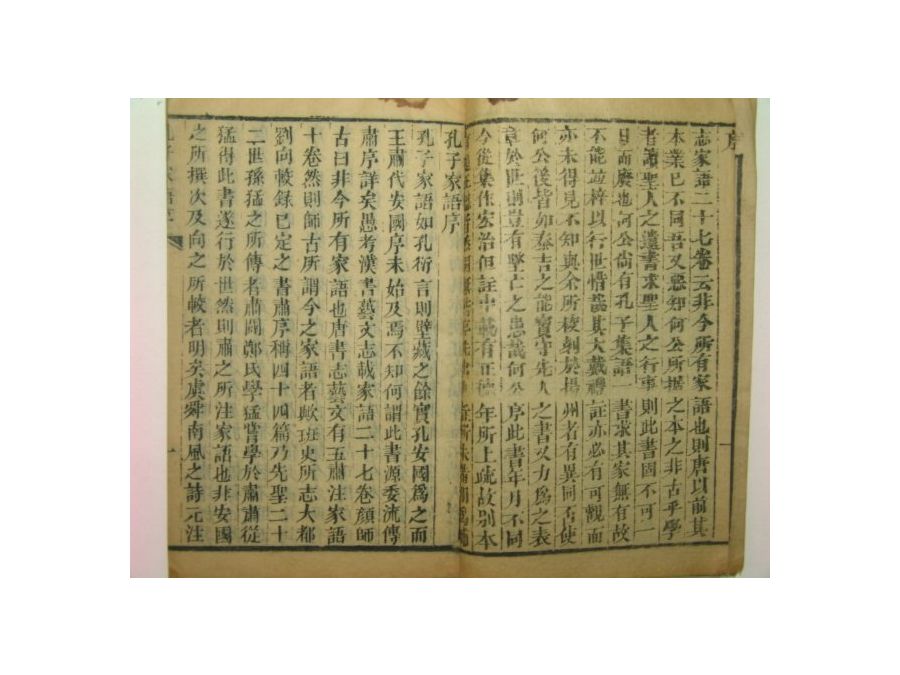 序
志家語二十七卷云非今所有家語也則唐以前其
本業已不同吾又惡知何公所撰之本之非古乎學
者讀聖人之遺書求聖人之行事則此書固不可一
日而廢也何公尚有孔子集語一書求其家無有故
不能竝梓以行世惜哉其大戴禮註亦必有可觀而
亦未得見不知與余所稜刻於揚州者有異同否使
何公後皆如秦吉之能寶守先人之書又力為之表
章於世則豈有墜亡之患哉何公序此書年月不同
今從集作宏治但註中載有正德年所上疏故別本
孔子家語序
孔子家語如孔衍言則壁藏之餘實孔安國為之而
王肅代安國序未始及焉不知何謂此書源委流傳
肅序詳矣愚考漢書藝文志載家語二十七卷顏師
古曰非今所有家語也唐書志藝文有王肅注家語
十卷然則師古所謂今之家語者歟班史所志大都
劉向較錄已定之書肅序稱四十四篇乃先聖二十
二世孫猛之所傳者肅闢鄭氏學猛嘗學於肅肅從
猛得此書遂行於世然則肅之所注家語也非安國
之所撰次及向之所較者明矣虞舜南風之詩元注
孔子家語序
一